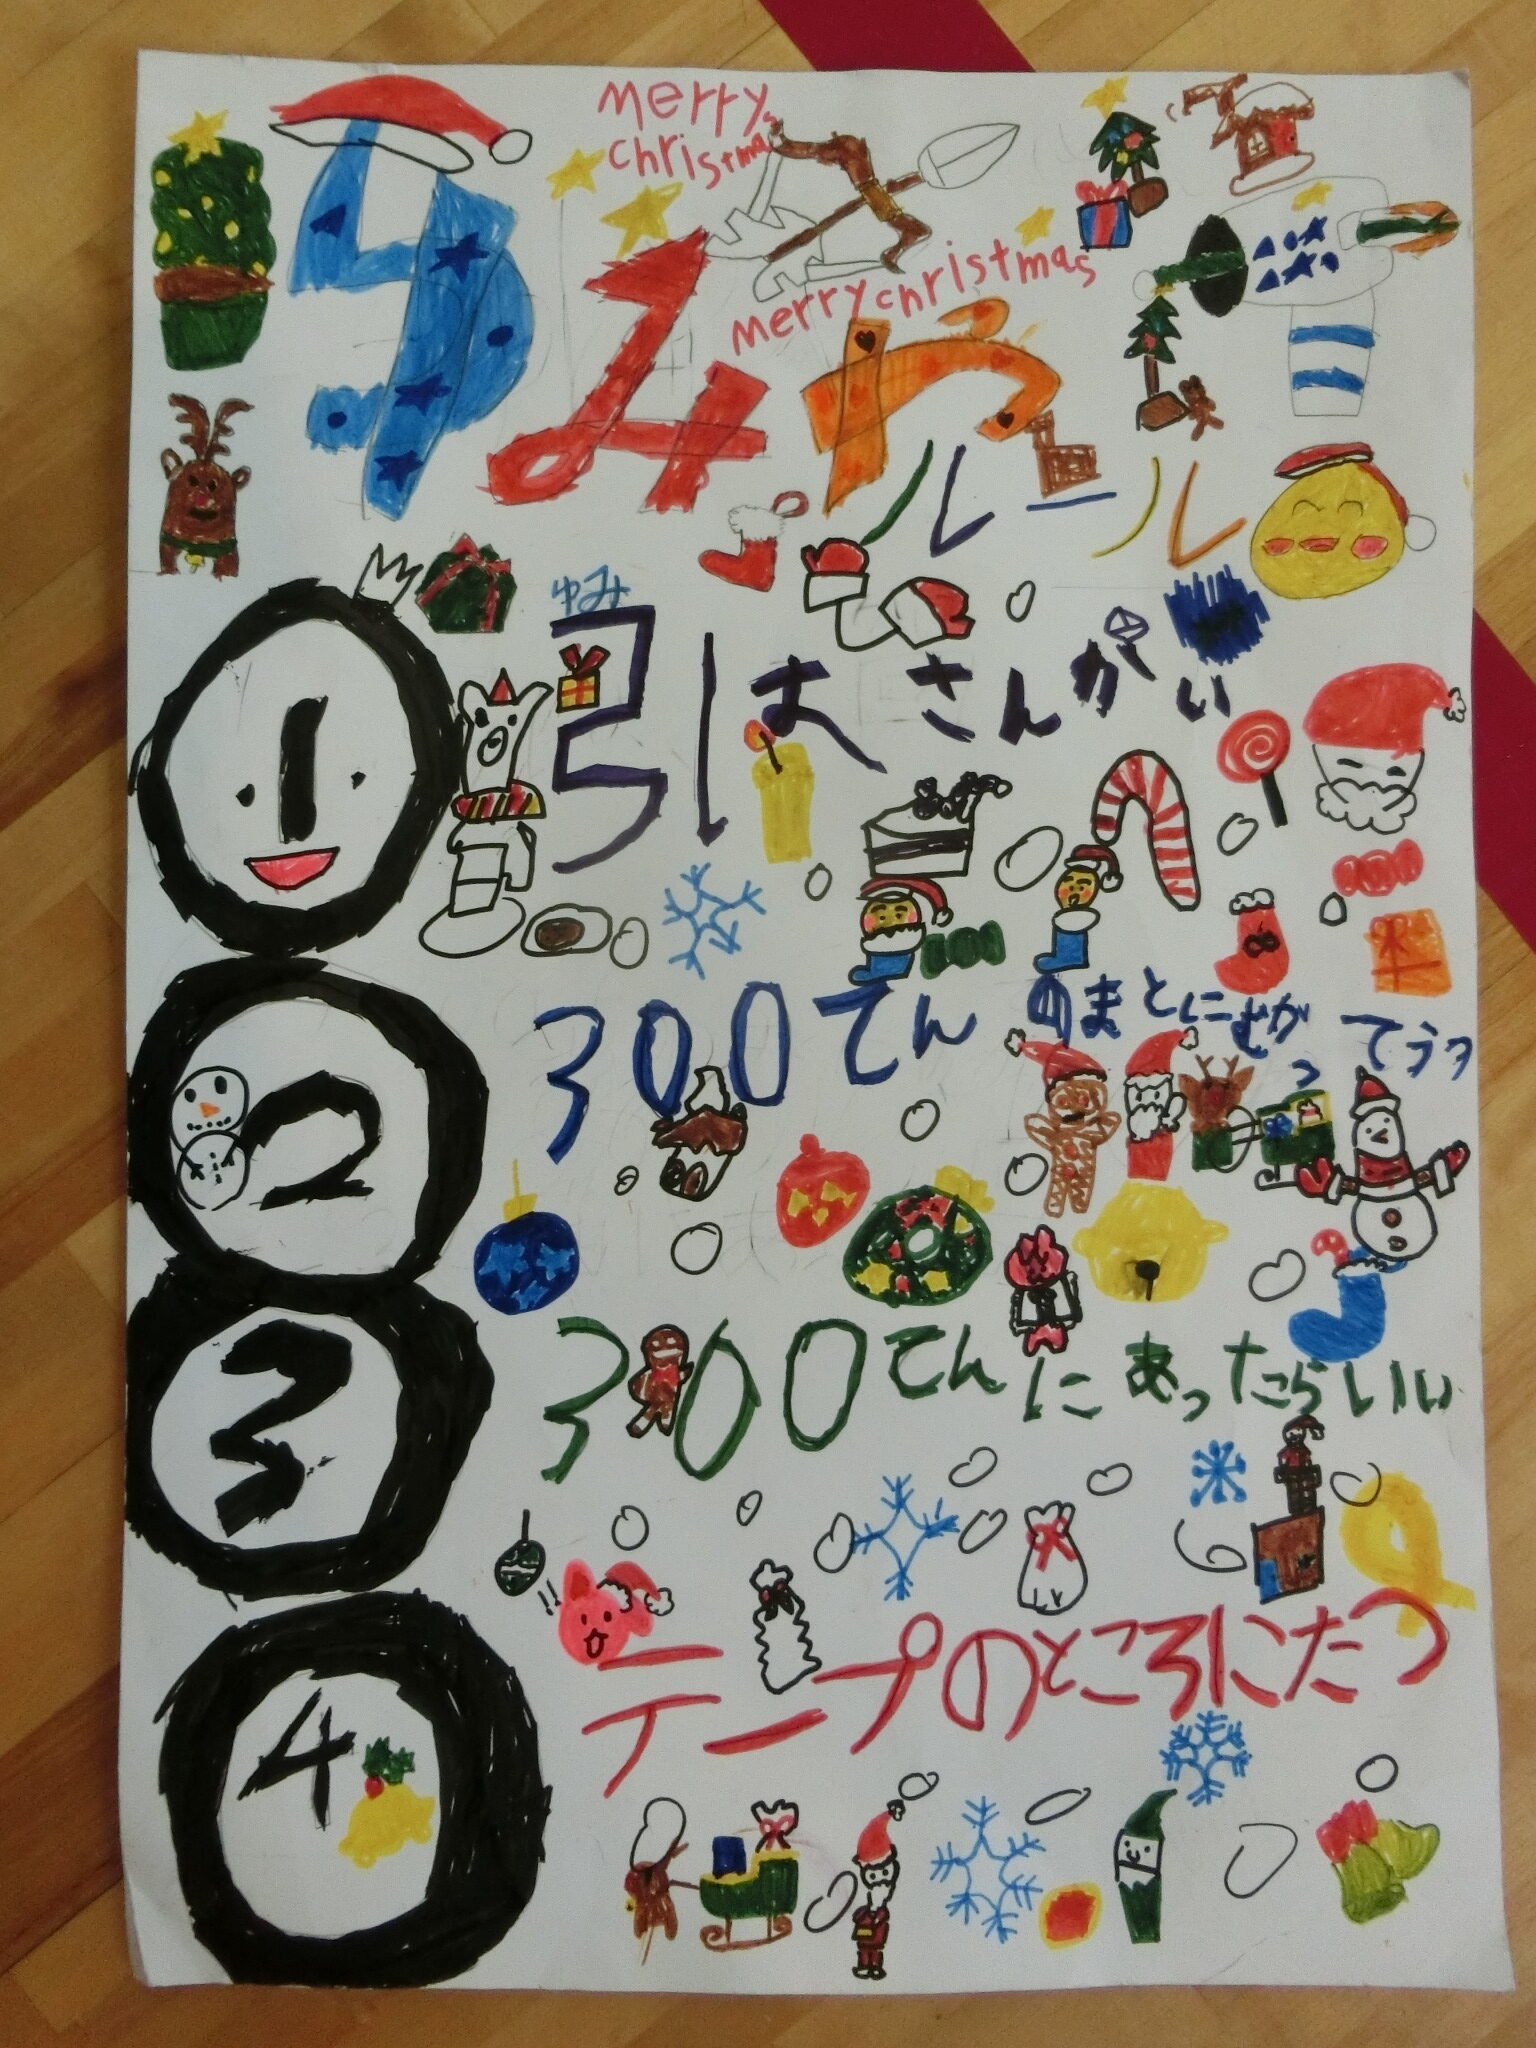 merry
christmas
ゆみや
merry christmas
ルール
1
ゆみ
引はさんかい
2
300てんのまとにむかってうつ
3
300てんにあったらいい
!!
4
テープのところにたつ